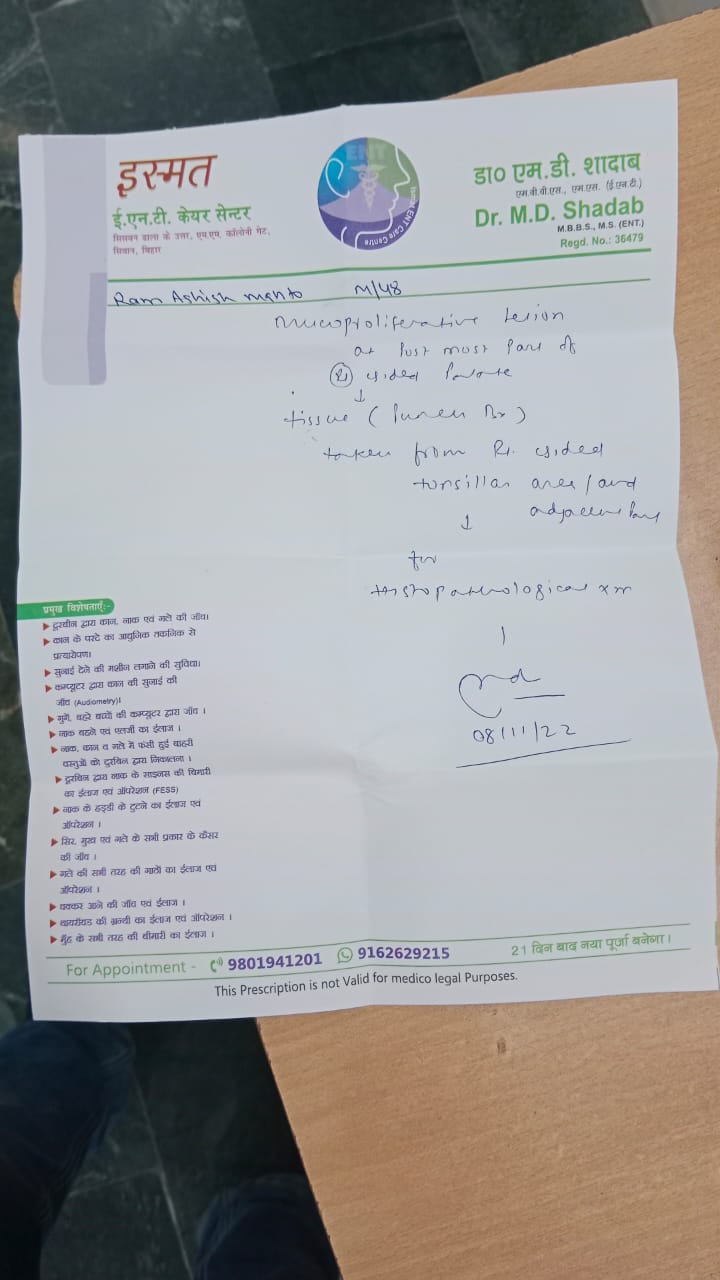 इस्मत
ई.एन.टी. केयर सेन्टर
सिसवन ढाला के उत्तर, एम.एम. कॉलोनी गेट,
सिवान, बिहार
ENT
ENT Care Centre
डा० एम.डी. शादाब
एम.बी.बी.एस., एम.एस. (ई.एन.टी.)
Dr. M.D. Shadab
M.B.B.S., M.S. (ENT.)
Regd. No.: 36479
Ram Ashish mahto M/48
mucoproliferative lesion
at post most part of
(R) sided
↓
tissue (Punch Bx)
taken from Rt. sided
tonsillar area/and
adjacent part
↓
for
Histopathological xm
08/11/22
प्रमुख विशेषताएँ:-
दूरबीन द्वारा कान, नाक एवं गले की जाँच।
कान के परदे का आधुनिक तकनिक से
प्रत्यारोपण।
सुनाई देने की मशीन लगाने की सुविधा।
कम्प्यूटर द्वारा कान की सुनाई की
जाँच (Audiometry)।
गूंगे, बहरे बच्चों की कम्प्यूटर द्वारा जाँच ।
नाक बहने एवं एलर्जी का ईलाज ।
नाक, कान व गले में फंसी हुई बाहरी
वस्तुओं को दूरबिन द्वारा निकालना ।
दूरबिन द्वारा नाक के साइनस की बिमारी
का ईलाज एवं ऑपरेशन (FESS)
नाक के हड्डी के टुटने का ईलाज एवं
ऑपरेशन ।
सिर, मुख एवं गले के सभी प्रकार के कैंसर
की जाँच ।
गले की सभी तरह की गाठों का ईलाज एवं
ऑपरेशन ।
चक्कर आने की जाँच एवं ईलाज ।
थायरॉयड की ग्रन्थी का ईलाज एवं ऑपरेशन ।
मुँह के सभी तरह की बीमारी का ईलाज ।
For Appointment - 9801941201 9162629215 21 दिन बाद नया पूर्जा बनेगा ।
This Prescription is not Valid for medico legal Purposes.